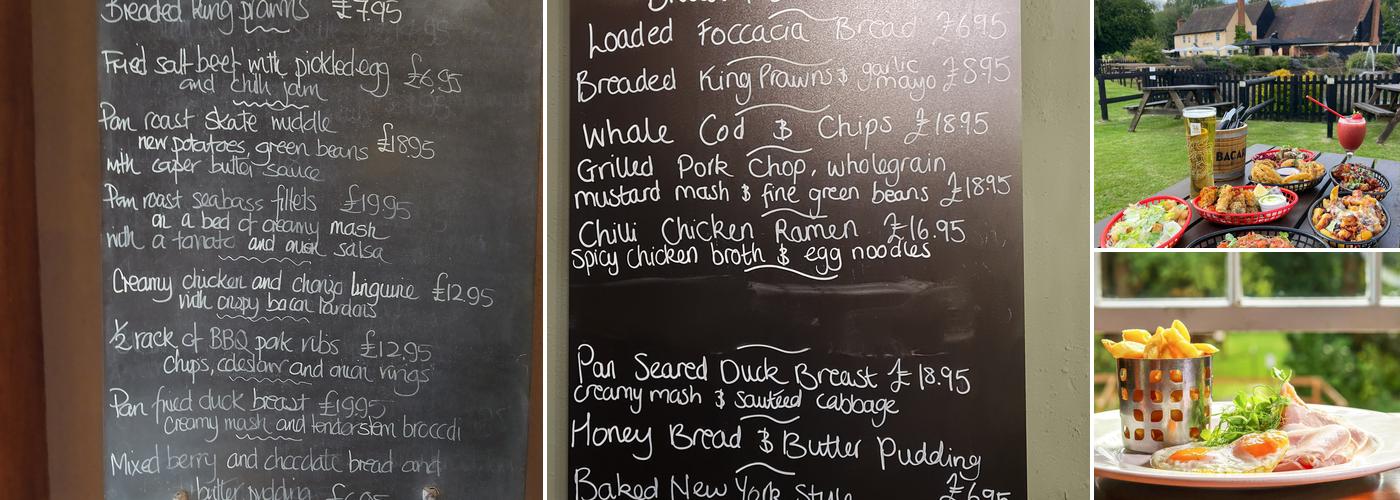 Breaded king prawns £7.95
Fried salt beef with pickled egg £6.95
and chilli jam
Pan roast skate middle
new potatoes, green beans £18.95
with caper butter sauce
Pan roast seabass fillets £19.95
on a bed of creamy mash
with a tomato and salsa
Creamy chicken and chorizo linguine £12.95
with crispy bacon lardons
½ rack of BBQ pork ribs £12.95
chips, coleslaw and onion rings
Pan fried duck breast £19.95
Creamy mash and tenderstem broccoli
Mixed berry and chocolate bread and
butter pudding £6.95
Loaded Foccacia Bread £6.95
Breaded King Prawns & garlic mayo £8.95
Whale Cod & Chips £18.95
Grilled Pork Chop, wholegrain
mustard mash & fine green beans £18.95
Chilli Chicken Ramen £16.95
spicy chicken broth & egg noodles
Pan Seared Duck Breast £18.95
creamy mash & sautéed cabbage
Honey Bread & Butter Pudding
Baked New York Style £6.95
BACAR